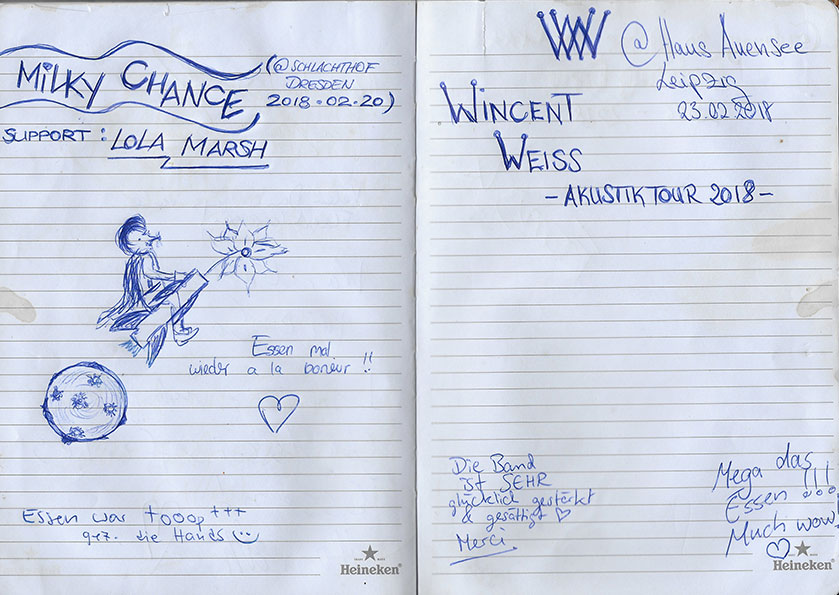 MILKY CHANCE
(@SCHLACHTHOF
DRESDEN
2018.02.20)
SUPPORT: LOLA MARSH
Essen mal
wieder a la boneur!!
Essen war tooop+++
gez. die Hands
Heineken
WW @ Haus Auensee
Leipzig
23.02.2018
WINCENT
WEISS
- AKUSTIKTOUR 2018 -
Die Band
ist SEHR
glücklich gestärkt
& gesättigt ♡
Merci
Mega das
Essen !!!
Much wow!
Heineken